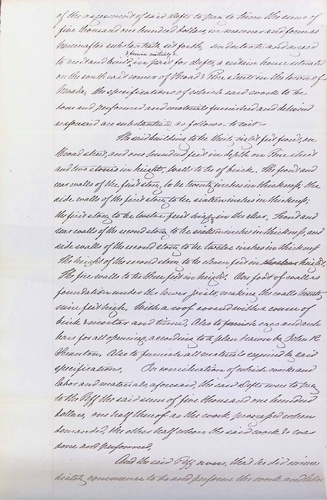 of the agreement of said defts to pay to them the sum of
five thousand one hundred dollars, in manner and form as
hereinafter substantially set forth, undertake and agree
to and build, furnish materials in part for defts, a certain house, situate
on the south east corner of Broad & Pine streets in the town of
the specifications of which said work to be
done and performed and materials furnished and delivered
as aforesaid are substantially as follows to wit—
The said building to be thirty eight feet front, on
Broad street, and one hundred feet in depth on Pine street
and two stories in height, walls to be of brick. The front and
rear walls of the first story, to be twenty inches in thickness; the
side walls of the first story to be sixteen inches in thickness;
the first story to be twelve feet high, in the clear. Front and
rear walls of the second story, to be sixteen inches in thickness, and
side walls of the second story to be twelve inches in thickness
The height of the second story to be eleven feet in height.
The fire walls to be three feet in height. One foot of wall as
foundation under the lower joists, making the walls twenty
seven feet high. With a roof covered with a course of
brick & mortar and Also to furnish caps and
for all openings, according to a plan drawn by John R.
Also to furnish all material required by said
specifications. In consideration of which work and
labor and materials aforesaid, the said defts were to pay
to the Plff the said sum of five thousand one hundred
dollars, one half thereof as the work progressed when
demanded, the other half when the said work was
done and performed.
And the said Plff avers, that he did imme-
diately commence to do and perform the work and labor